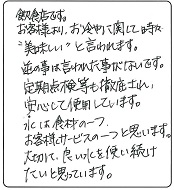 飲食店です。
お客様より、お冷やに関して時々
"美味しい"と言われます。
並の事は言われた事がないです。
定期点検等も徹底され、
安心して使用しています。
水は食材の一つ、
お客様とサービスの一つと思います。
大切で、良い水を使い続け
たいと思っています。